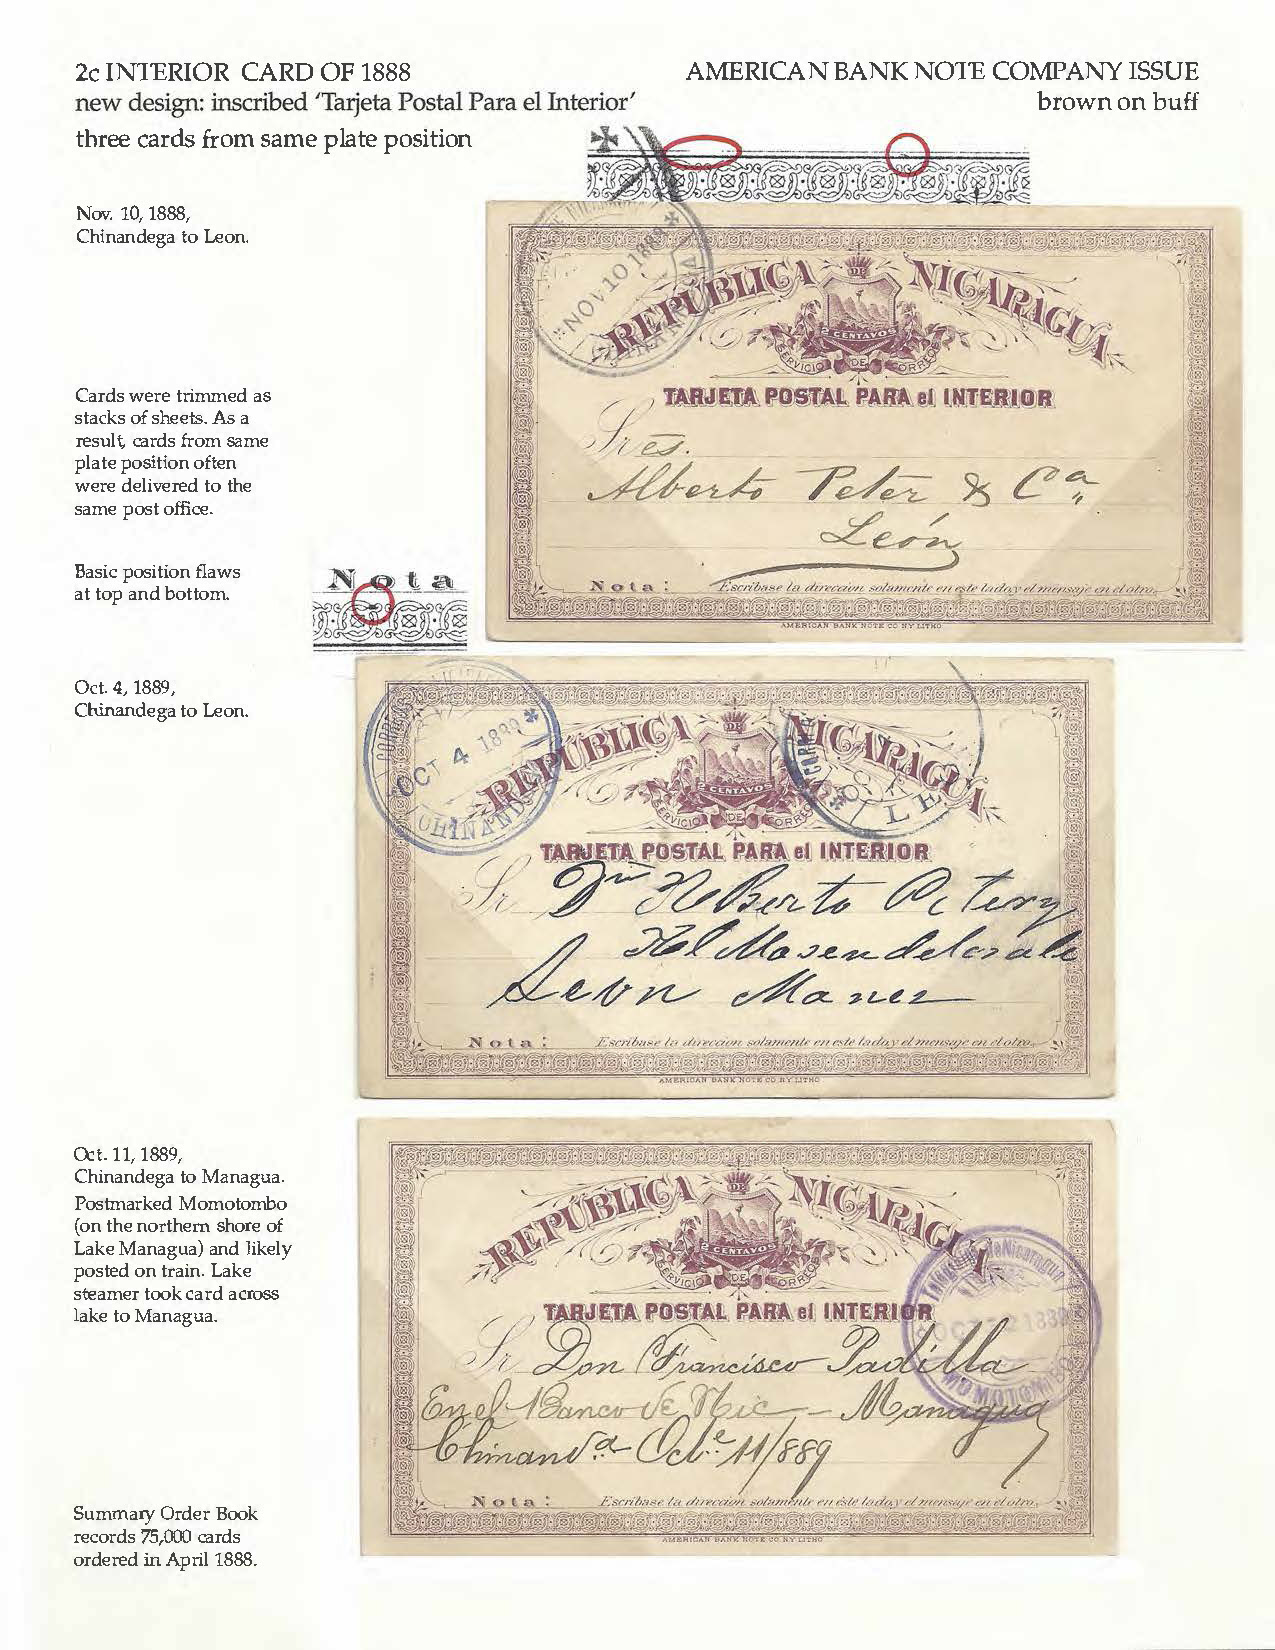 2c INTERIOR CARD OF 1888
AMERICAN BANK NOTE COMPANY ISSUE
new design: inscribed 'Tarjeta Postal Para el Interior'
brown on buff
three cards from same plate position
Nov. 10, 1888,
Chinandega to Leon.
NOV 10 1888
REPUBLICA DE NICARAGUA
2 CENTAVOS
SERVICIO DE CORREOS
TARJETA POSTAL PARA el INTERIOR
Sres.
Alberto Peter & Ca
León
Nota: Escribase la direccion solamente en este lado, y el mensaje en el otro.
AMERICAN BANK NOTE CO. N.Y. LITHO
Cards were trimmed as
stacks of sheets. As a
result, cards from same
plate position often
were delivered to the
same post office.
Basic position flaws
at top and bottom.
Nota
Oct. 4, 1889,
Chinandega to Leon.
CORREOS
OCT 4 1889
CHINANDE
REPUBLICA DE NICARAGUA
LE
2 CENTAVOS
SERVICIO DE CORREOS
TARJETA POSTAL PARA el INTERIOR
Sr.
Leon
Nota: Escribase la direccion solamente en este lado, y el mensaje en el otro.
AMERICAN BANK NOTE CO. N.Y. LITHO
Oct. 11, 1889,
Chinandega to Managua.
Postmarked Momotombo
(on the northern shore of
Lake Managua) and likely
posted on train. Lake
steamer took card across
lake to Managua.
REPUBLICA DE NICARAGUA
2 CENTAVOS
SERVICIO DE CORREOS
TARJETA POSTAL PARA el INTERIOR
OCT 12 1889
MOMOTOMBO
Sr. Don Francisco Padilla
En el Banco de Nic — Managua
Chinand.a Oct.e 11/889
Nota: Escribase la direccion solamente en este lado, y el mensaje en el otro.
AMERICAN BANK NOTE CO. N.Y. LITHO
Summary Order Book
records 75,000 cards
ordered in April 1888.